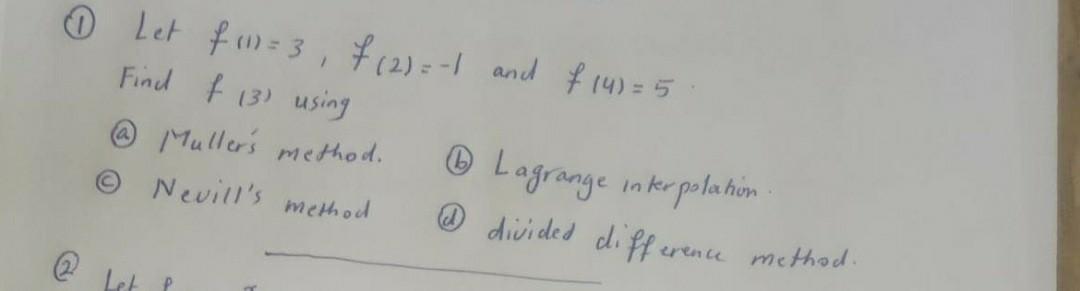 ① Let f(1)=3, f(2)=-1 and f(4)=5.
Find f(3) using
ⓐ Muller's method. ⓑ Lagrange interpolation.
ⓒ Nevill's method ⓓ divided difference method.
② Let